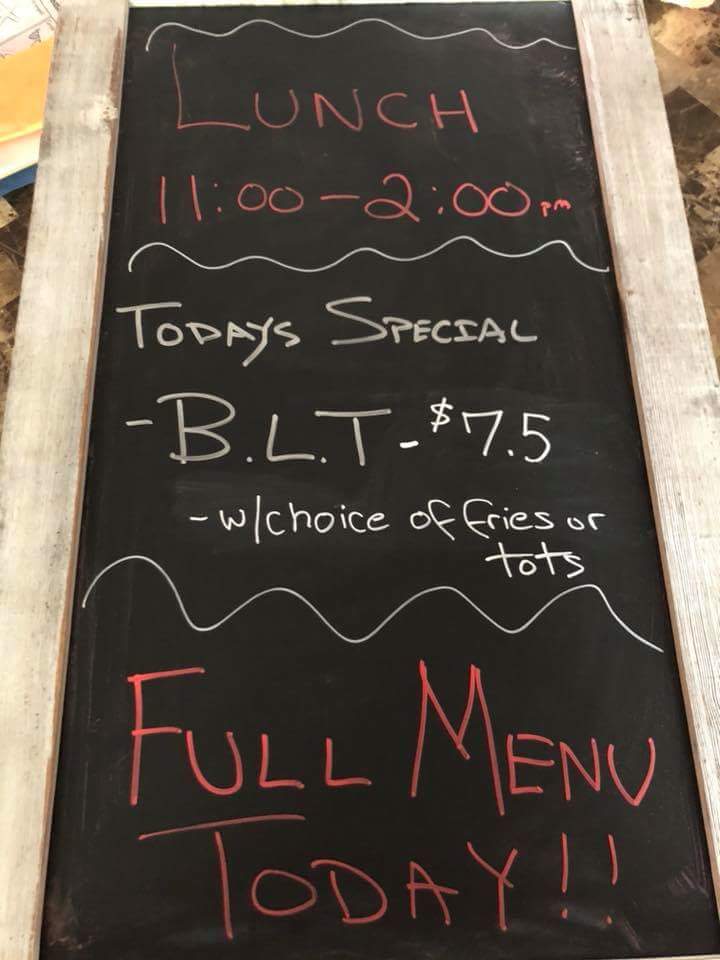 LUNCH
11:00-2:00 PM
TODAYS SPECIAL
-B.L.T-$7.5
-w/choice of fries or
tots
FULL MENU
TODAY!!